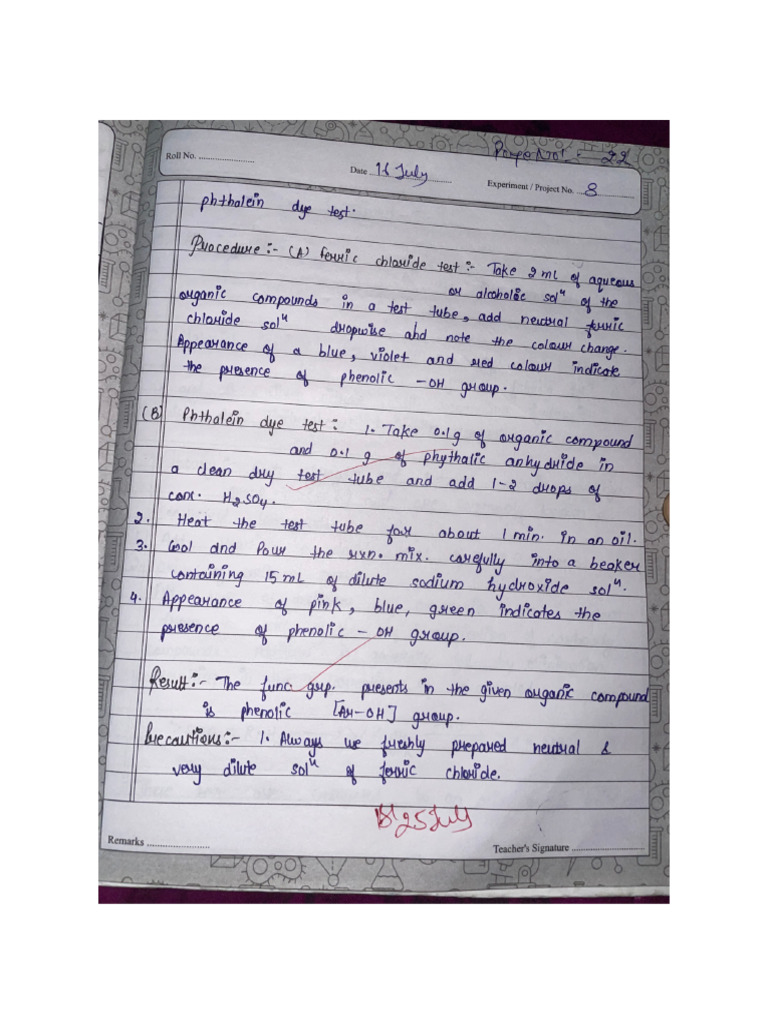 Page No. :- 22
Roll No. ........................
Date ...16 July..........
Experiment / Project No. ....8
phthalein dye test.
Procedure :- (A) ferric chloride test :- Take 2 mL of aqueous
or alcoholic solⁿ of the
organic compounds in a test tube, add neutral ferric
chloride solⁿ dropwise and note the colour change.
Appearance of a blue, violet and red colour indicate
the presence of phenolic -OH group.
(B) Phthalein dye test : 1. Take 0.1g of organic compound
and 0.1 g of phythalic anhydride in
a clean dry test tube and add 1-2 drops of
conc. H₂SO₄.
2. Heat the test tube for about 1 min. in an oil.
3. Cool and Pour the rxn. mix. carefully into a beaker
containing 15 mL of dilute sodium hydroxide solⁿ.
4. Appearance of pink, blue, green indicates the
presence of phenolic - OH group.
Result :- The func. grp. presents in the given organic compound
is phenolic [Ar-OH] group.
Precautions :- 1. Always use freshly prepared neutral &
very dilute solⁿ of ferric chloride.
25 July
Remarks ......................
Teacher's Signature .........................